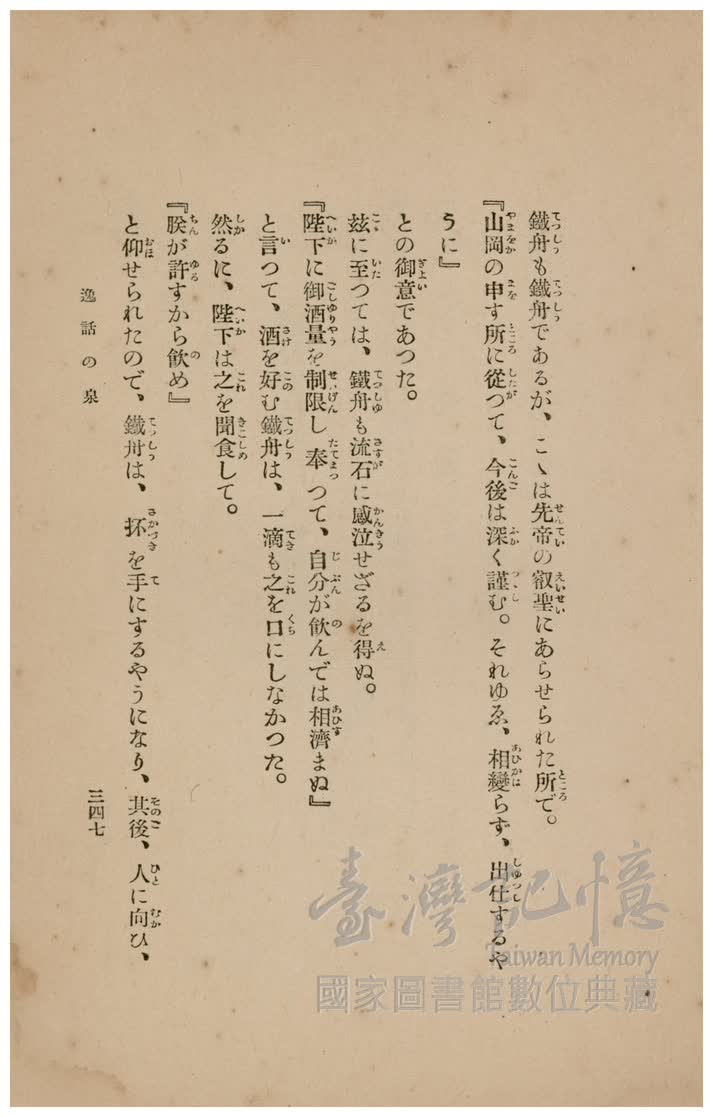 鐵舟も鐵舟であるが、こゝは先帝の叡聖にあらせられた所で。
『山岡の申す所に從つて、今後は深く謹む。それゆゑ、相變らず、出仕するや
うに』
との御意であつた。
玆に至つては、鐵舟も流石に感泣せざるを得ぬ。
『陛下に御酒量を制限し奉つて、自分が飮んでは相濟まぬ』
と言つて、酒を好む鐵舟は、一滴も之を口にしなかつた。
然るに、陛下は之を聞食して。
『朕が許すから飮め』
と仰せられたので、鐵舟は、抔を手にするやうになり、其後、人に向ひ、
逸話の泉
三四七
臺灣記憶
Taiwan Memory
國家圖書館數位典藏